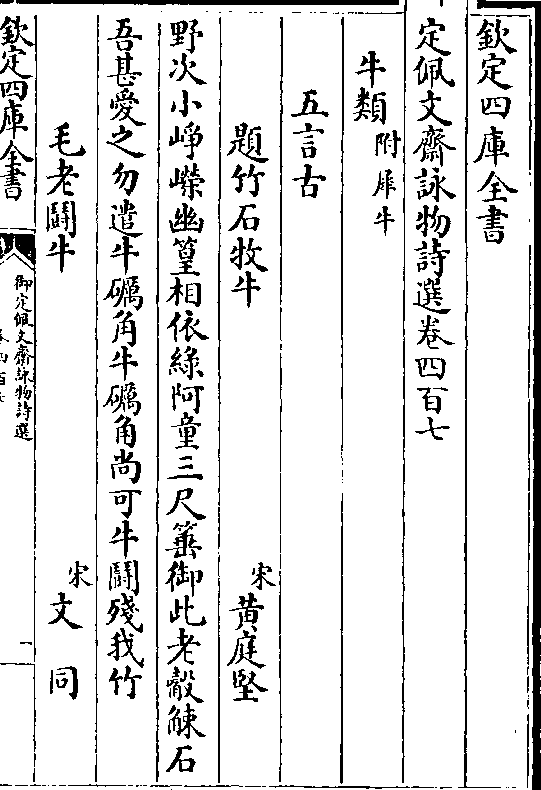 欽定四庫全書
定佩文齋詠物詩選卷四百七
牛類 附犀牛
五言古
題竹石牧牛 宋 黄庭堅
野次小崢嶸幽篁相依綠阿童三尺箠御此老觳觫石
吾甚愛之勿遣牛礪角牛礪角尚可牛鬭殘我竹
毛老鬭牛 宋 文同
欽定四庫全書
御定佩文齋詠物詩選
卷四百七
一